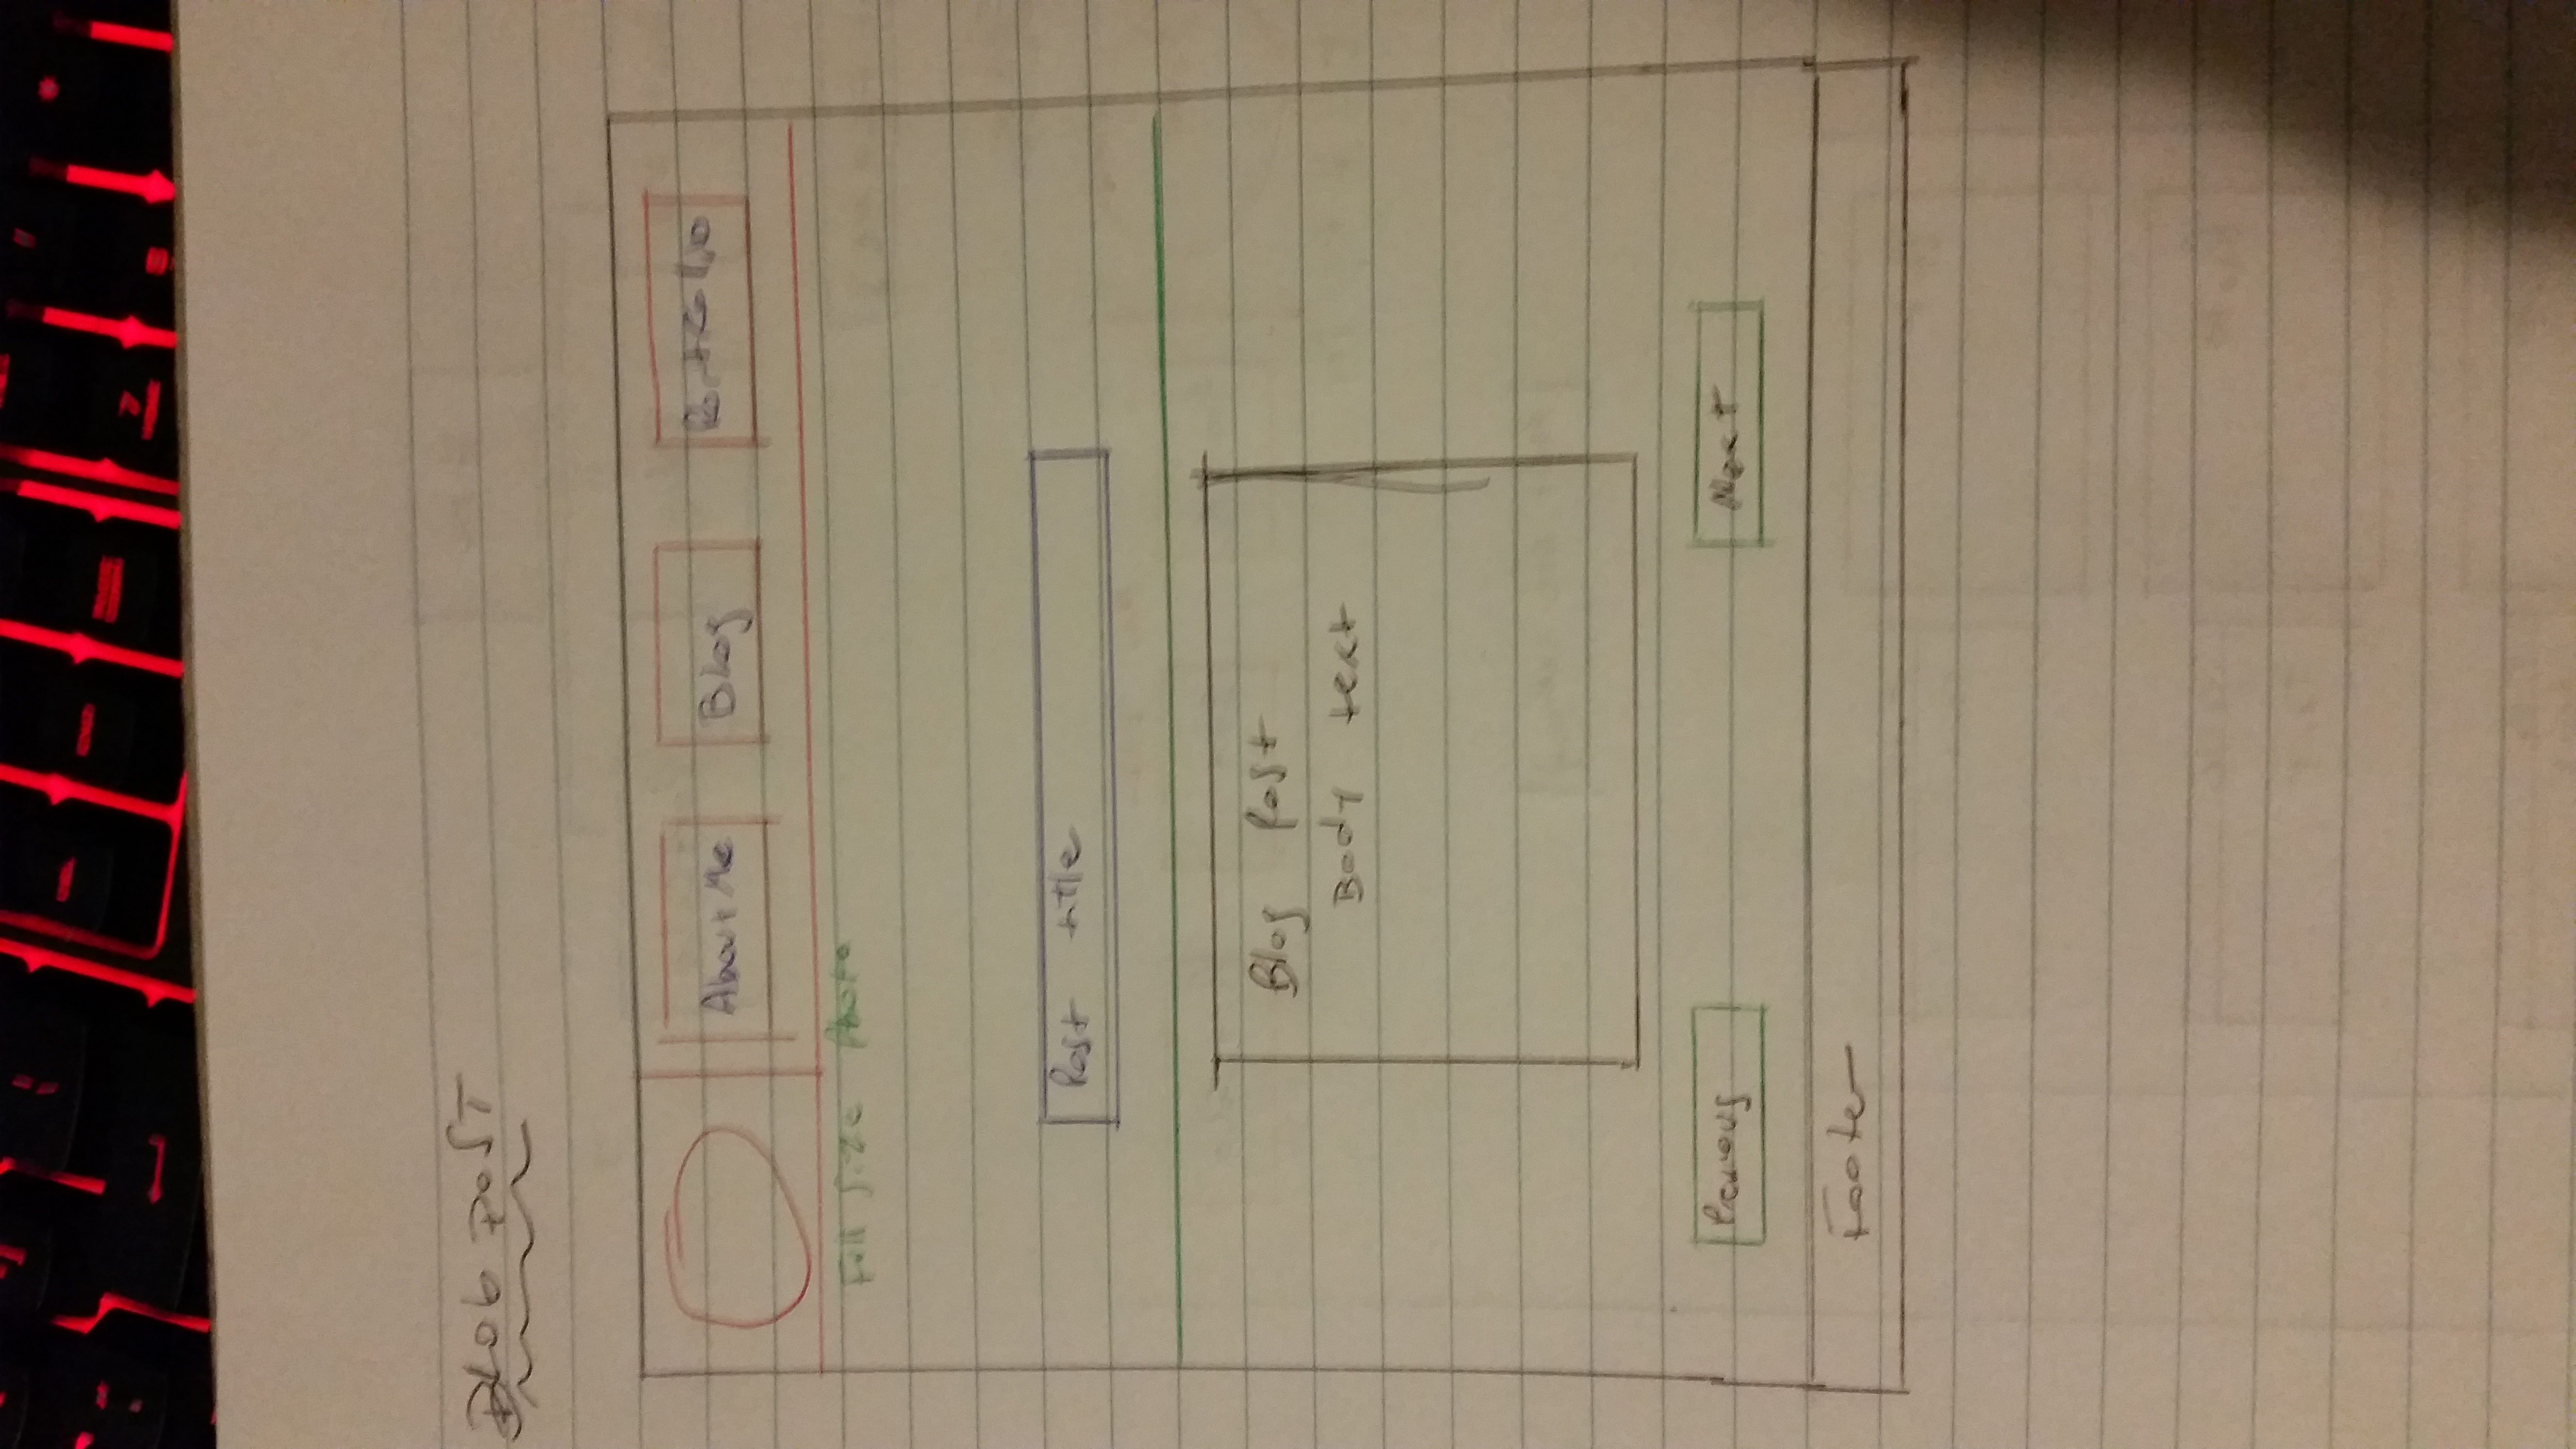 BLOG POST
About Me Blog Portfolio
Full Size Photo
Post title
Blog Post
Body text
Previous Next
Footer